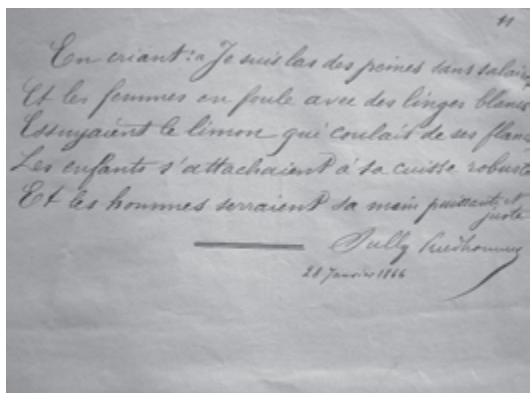 11
En criant: « Je suis las des peines sans salaire
Et les femmes en foule avec des linges blancs
Essuyaient le limon qui coulait de ses flancs
Les enfants s'attachaient à sa cuisse robuste
Et les hommes serraient sa main puissante et
juste
Sully Prudhomme
28 Janvier 1866